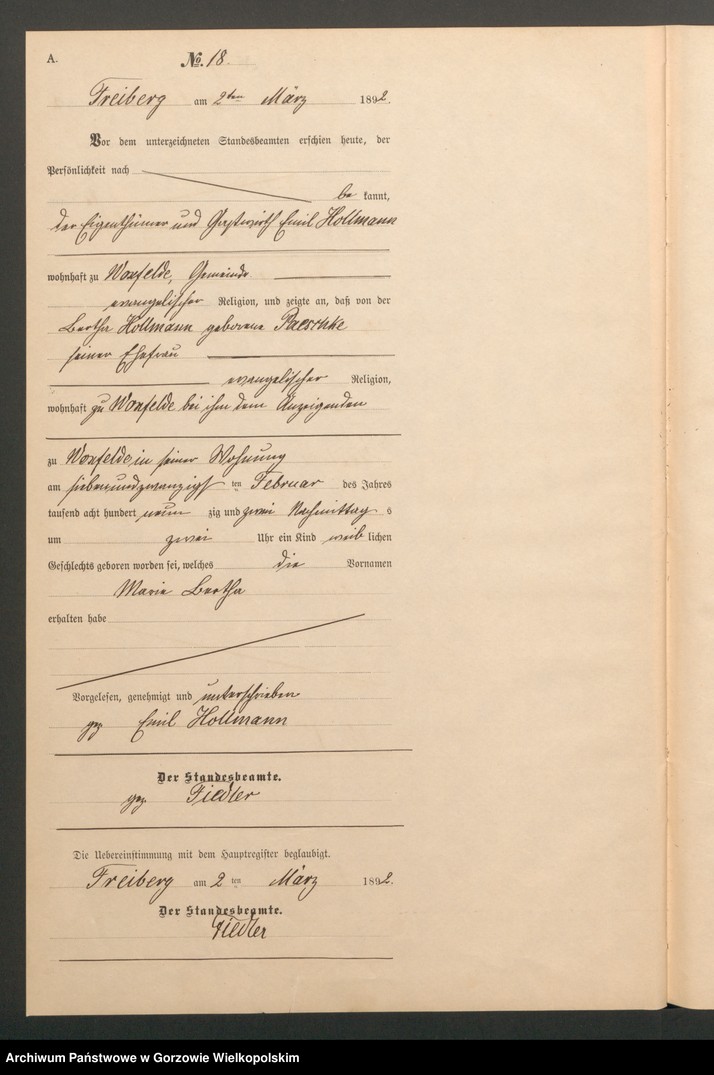 A.
No. 18.
Freiberg am 2ten März 1892.
Vor dem unterzeichneten Standesbeamten erschien heute, der
Persönlichkeit nach
be kannt,
der Eigenthümer und Gastwirth Emil Hollmann
wohnhaft zu Woxfelde, Gemeinde
evangelischer Religion, und zeigte an, daß von der
Bertha Hollmann geborene Paeschke
seiner Ehefrau
evangelischer Religion,
wohnhaft zu Woxfelde bei ihm dem Anzeigenden
zu Woxfelde in seiner Wohnung
am siebenundzwanzigs ten Februar des Jahres
tausend acht hundert neun zig und zwei Nachmittag s
um zwei Uhr ein Kind weib lichen
Geschlechts geboren worden sei, welches die Vornamen
Marie Bertha
erhalten habe
Vorgelesen, genehmigt und unterschrieben
gez Emil Hollmann
Der Standesbeamte.
gez. Fiedler
Die Uebereinstimmung mit dem Hauptregister beglaubigt.
Freiberg am 2 ten März 1892.
Der Standesbeamte.
Fiedler
Archiwum Państwowe w Gorzowie Wielkopolskim